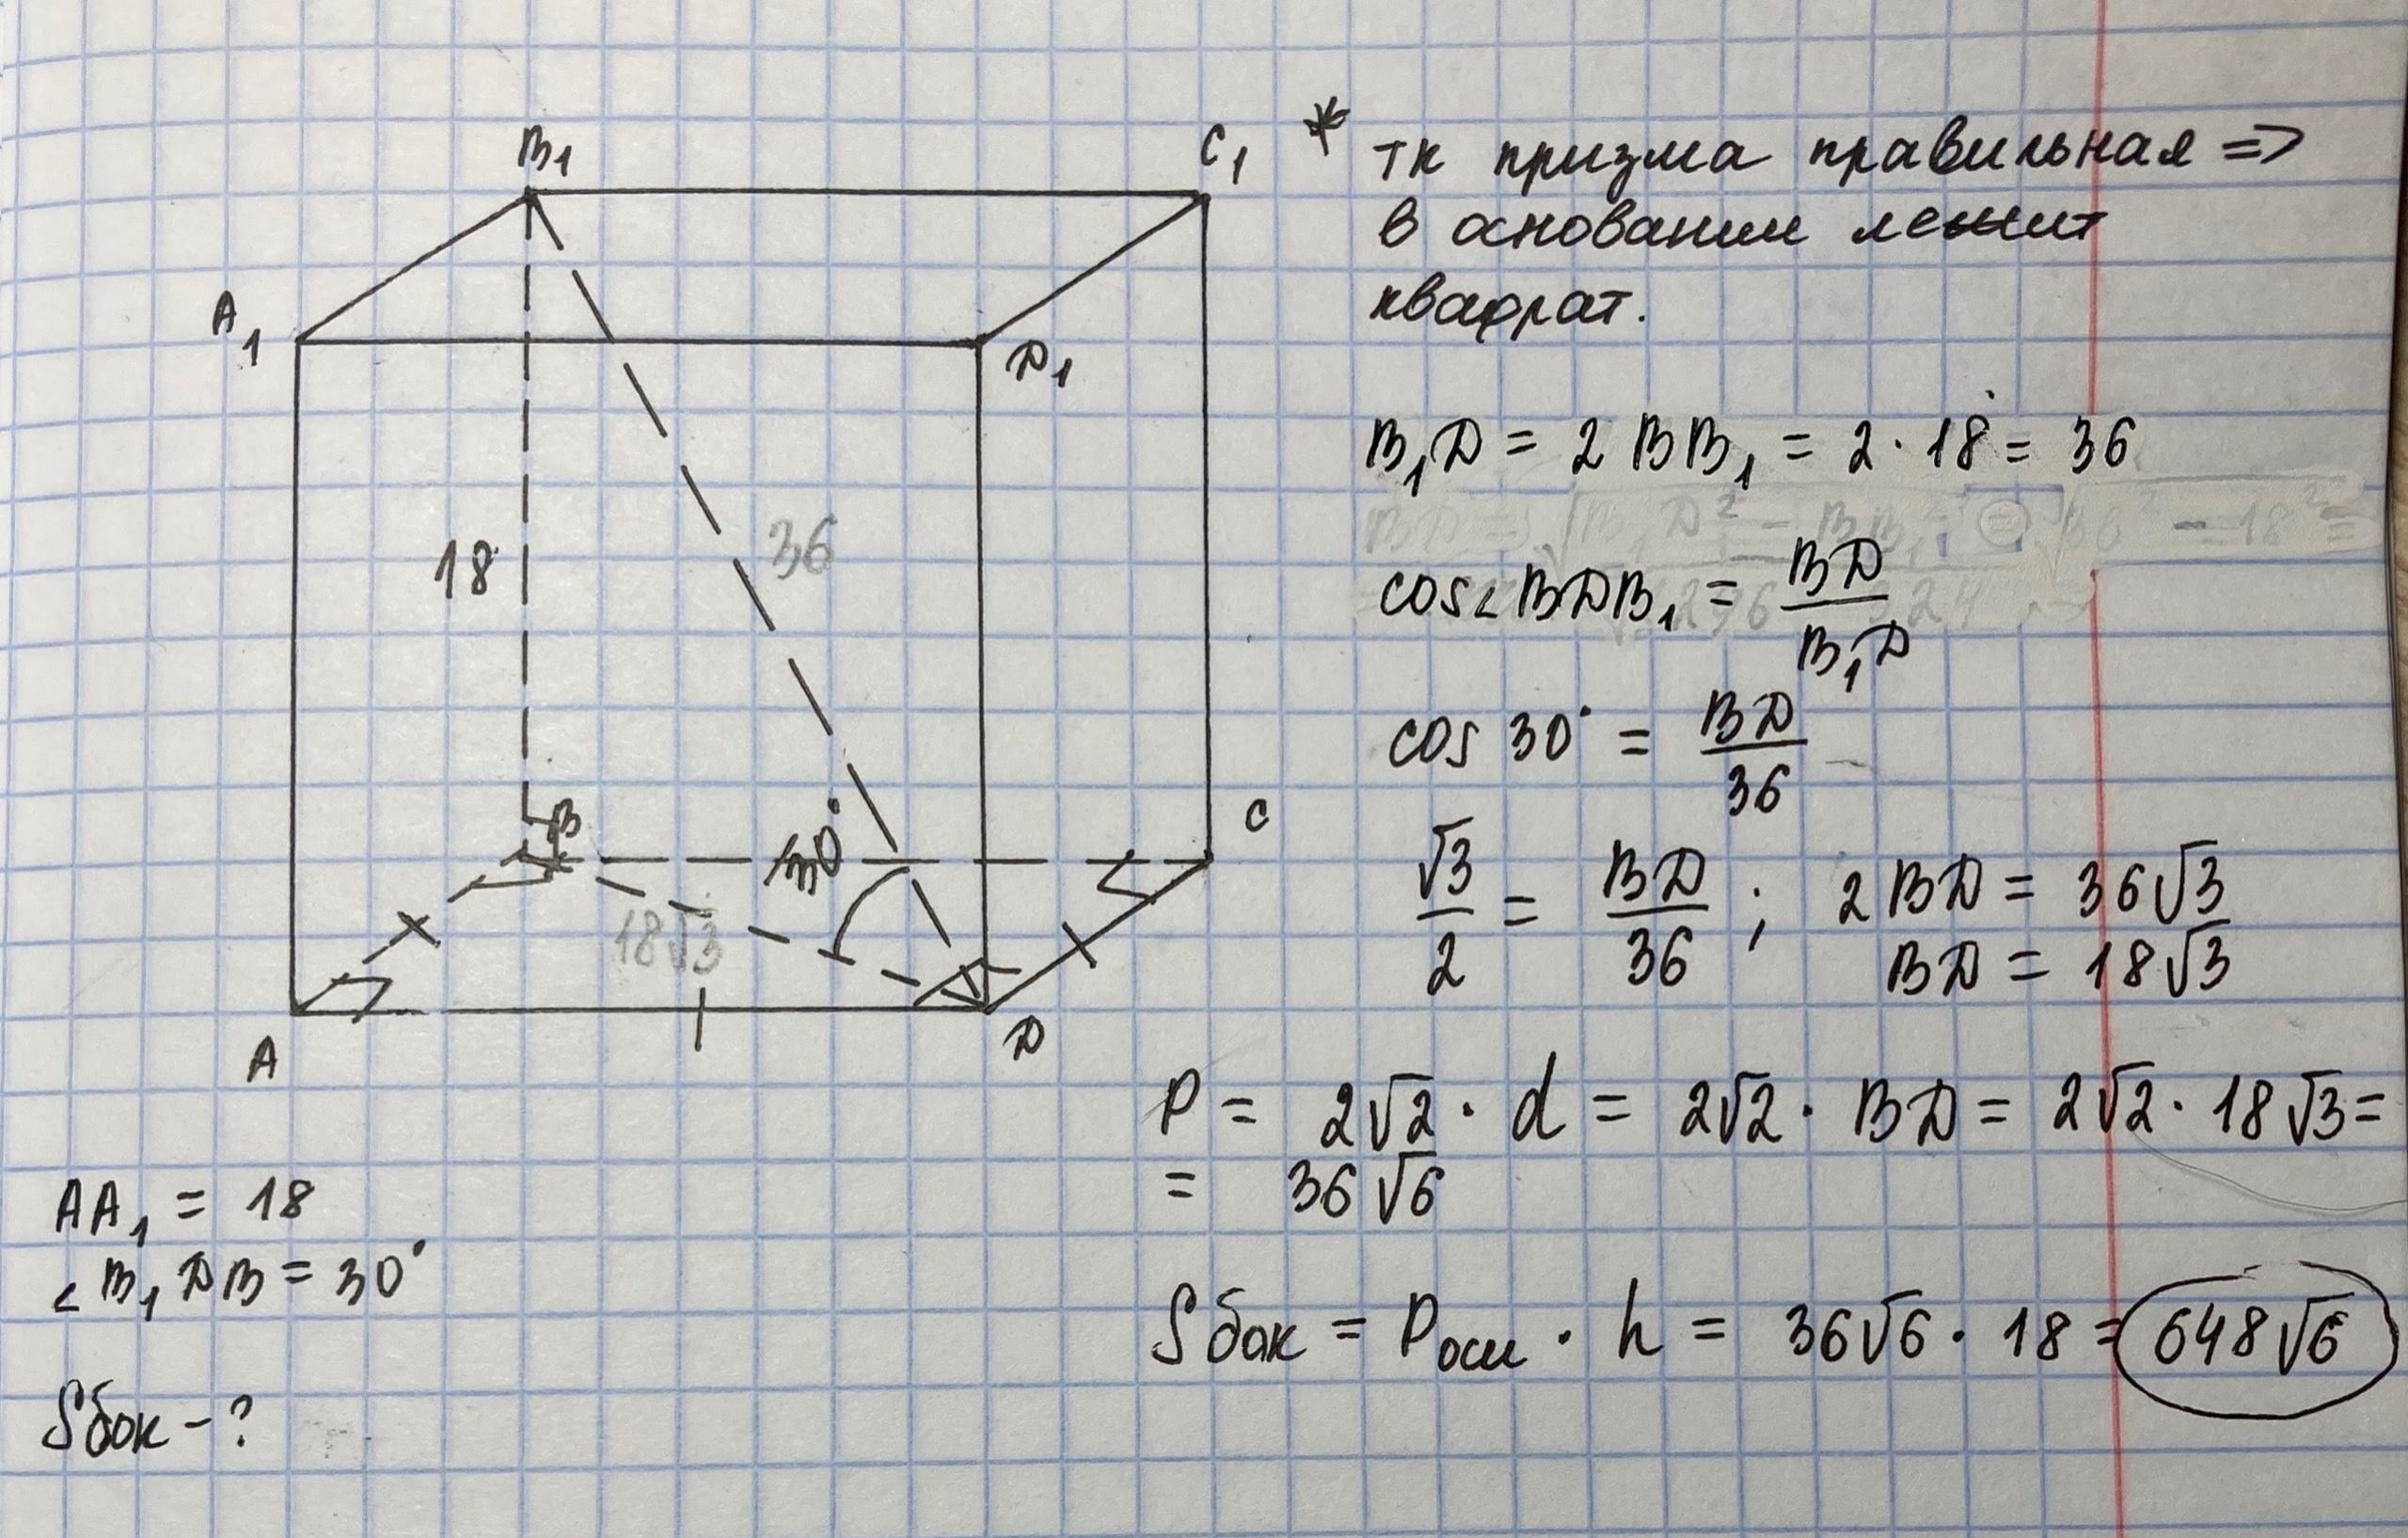 B₁
C₁
A₁
D₁
18
36
30°
B
C
18√3
A
D
AA₁ = 18
∠B₁DB = 30°
Sбок - ?
* тк призма правильная =>
в основании лежит
квадрат.
B₁D = 2 BB₁ = 2 · 18 = 36
cos∠BDB₁ = BD/B₁D
cos 30° = BD/36
√3/2 = BD/36 ; 2 BD = 36√3
BD = 18√3
P = 2√2 · d = 2√2 · BD = 2√2 · 18√3 =
= 36√6
Sбок = Pосн · h = 36√6 · 18 = 648√6